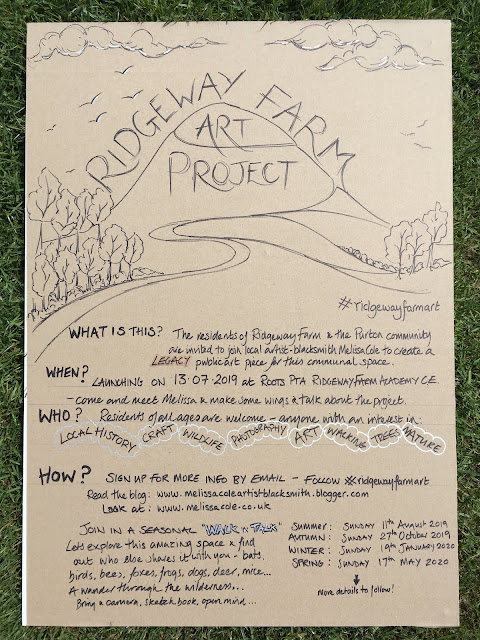 RIDGEWAY FARM
ART
PROJECT
#ridgewayfarmart
WHAT IS THIS? The residents of Ridgeway Farm & the Purton community
are invited to join local artist-blacksmith Melissa Cole to create a
LEGACY public art piece for this communal space.
WHEN? LAUNCHING ON 13·07·2019 at ROOTS PTA RIDGEWAY FARM ACADEMY CE.
- come and meet Melissa & make some wings & talk about the project.
WHO? Residents of all ages are welcome - anyone with an interest in:
LOCAL HISTORY CRAFT WILDLIFE PHOTOGRAPHY ART WALKING TREES NATURE
HOW? SIGN UP FOR MORE INFO BY EMAIL - FOLLOW #ridgewayfarmart
Read the blog: www.melissacoleartist-blacksmith.blogger.com
Look at: www.melissacole.co.uk
JOIN IN A SEASONAL "WALK 'n' TALK"
Lets explore this amazing space & find
out who else shares it with you - bats,
birds, bees, foxes, frogs, dogs, deer, mice...
A wander through the wilderness...
Bring a camera, sketch book, open mind...
SUMMER: SUNDAY 11th August 2019
AUTUMN: SUNDAY 27th October 2019
WINTER: SUNDAY 19th JANUARY 2020
SPRING: SUNDAY 17th MAY 2020
More details to follow!